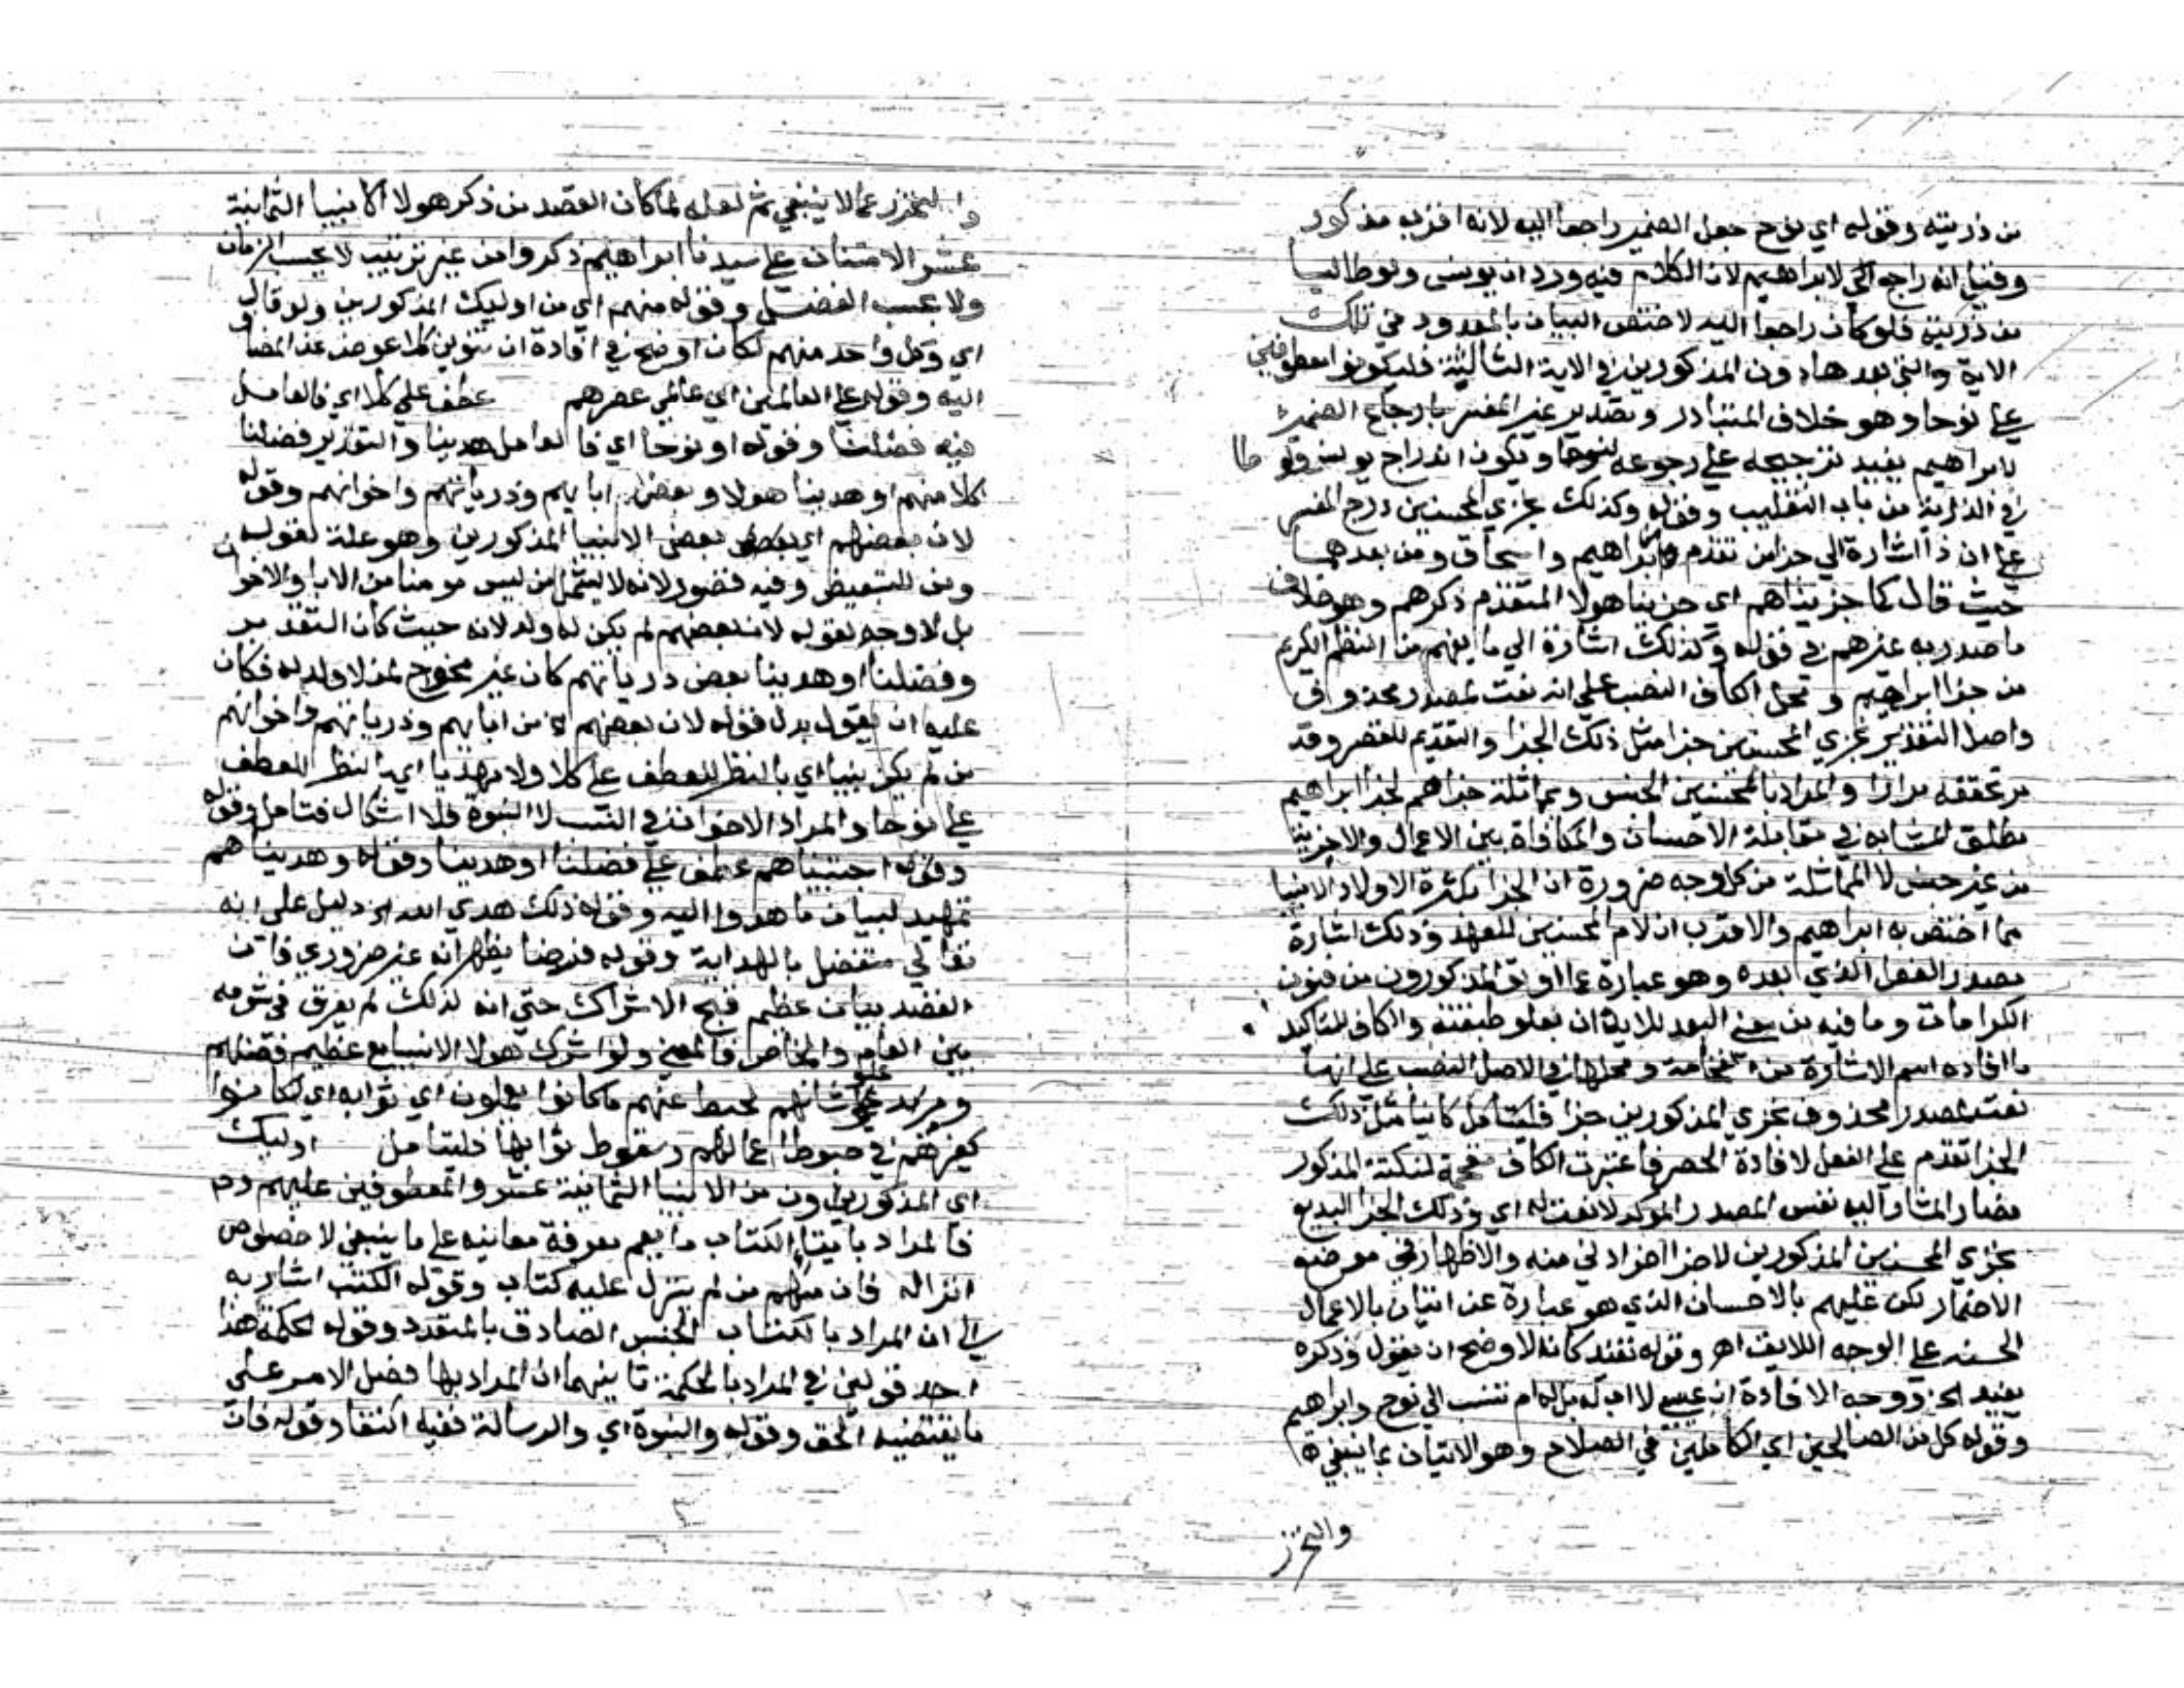 من ذريته وقوله اي نوح جعل الضمير راجعا اليه لانه اقرب مذكور
وقيل انه راجع الي لابراهيم لان الكلام فيه وورد ان يونس ولوطا ليسا
من ذريته فلو كان راجعا اليه لاختص البيان بالمعدود في تلك
الاية والتي بعدها دون المذكورين في الاية الثالثة فليكونوا معطوفين
علي نوحا وهو خلاف المتبادر وتصدير غير المفسر بارجاع الضمير
لابراهيم يفيد ترجيحه علي رجوعه لنوح ويكون اندراج يونس ولوطا
في الذرية من باب التغليب وقوله وكذلك نجزي المحسنين درج المفسر
علي ان ذا اشارة الي جزا من تقدم كابراهيم واسحاق ومن بعدهما
حيث قال كما جزيناهم اي جزينا هولا المتقدم ذكرهم وهو خلاف
ما صدر به غيرهم في قوله وكذلك اشارة الي ما يفهم من النظم الكريم
من جزا ابراهيم ومحل الكاف النصب علي انه نعت لمصدر محذوف
واصل التقدير نجزي المحسنين جزا مثل ذلك الجزا والتقديم للقصر وقد
مر تحققه مرارا والمراد بالمحسنين الجنس وبمماثلة جزاهم لجزا ابراهيم
مطلق المشابهة في مقابلة الاحسان والمكافاة بين الاعمال والاجزية
من غير جنس لا المماثلة من كل وجه ضرورة ان الجزا بكثرة الاولاد الانبيا
مما اختص به ابراهيم والاقرب ان لام المحسنين للعهد وذلك اشارة
لمصدر الفعل الذي بعده وهو عبارة عما اوتي المذكورون من فنون
الكرامات وما فيه من معني البعد للايذان بعلو طبقته والكاف لتاكيد
ما افاده اسم الاشارة من الفخامة ومحلها في الاصل النصب علي انها
نعت لمصدر محذوف نجزي المذكورين جزا كاينا مثل ذلك
الجزا فقدم علي الفعل لافادة الحصر فاعتبرت الكاف مقحمة لنكتة المذكور
فصار المشار اليه نفس المصدر الموكد لا نعت له اي وذلك الجزا البديع
نجزي المحسنين المذكورين لا جزا اخر ادني منه والاظهار في موضع
الاضمار لكن عليهم بالاحسان الذي هو عبارة عن اتيان بالاعمال
الحسنه علي الوجه اللايق اهـ وقوله تفيد كانه الاوضح ان يقول وذكره
يفيد الخ ووجه الافادة ان عيسي لا اب له بل له ام تنسب الي نوح وابراهيم
وقوله كل من الصالحين اي الكاملين في الصلاح وهو الاتيان بما ينبغي
والتحرز
والتحرز عما لا ينبغي ثم لعله لما كان القصد من ذكر هولا الانبيا الثمانية
عشر الامتنان علي سيدنا ابراهيم ذكروا من غير ترتيب لا بحسب الزمان
ولا بحسب الفضل وقوله منهم اي من اوليك المذكورين ولو قال
اي وكل واحد منهم لكان اوضح في افادة ان تنوين كلا عوض عن المضاف
اليه وقوله علي العالمين اي عالمي عصرهم عطف علي كلا اي فالعامل
فيه فضلنا وقوله او نوحا اي فالعامل هدينا والتقدير فضلنا
كلا منهم او هدينا هولا وبعض ابايهم وذرياتهم واخوانهم وقوله
لان بعضهم اي بعض الانبيا المذكورين وهو علة لقوله
ومن للتبعيض وفيه قصور لانه لا يشمل من ليس مومنا من الابا والاخوان
بل لا وجه لقوله لان بعضهم لم يكن له ولد لانه حيث كان التقدير
وفضلنا او هدينا بعض ذرياتهم كان غير محوج لمن لا ولد له فكان
عليه ان يقول بدل قوله لان بعضهم من ابايهم وذرياتهم واخوانهم
من لم يكن نبيا اي بالنظر للعطف علي كلا ولا مهديا اي بالنظر للعطف
علي نوحا والمراد الاخوان في النسب لا النبوة فلا اشكال فتامل وقوله
وقوله اجتبيناهم عطف علي فضلنا او هدينا وقوله وهديناهم
تمهيد لبيان ما هدوا اليه وقوله ذلك هدي الله الخ دليل علي انه
تعالي متفضل بالهداية وقوله فرضا يظهر انه غير ضروري فان
القصد بيان عظيم قبح الاشراك حتي انه لذلك لم يفرق في شومه
بين العام والخاص فالمعني ولو اشرك هولا الانبيا مع عظيم فضلهم
ومزيد علو شانهم لحبط عنهم ما كانوا يعملون اي ثوابه اي لكانوا
كغيرهم في حبوط اعمالهم وسقوط ثوابها فليتامل اوليك
اي المذكورون من الانبيا الثمانية عشر والمعطوفين عليهم
فالمراد بايتا الكتاب ما يعم معرفة معانيه علي ما ينبغي لا خصوص
انزاله فان منهم من لم ينزل عليه كتاب وقوله الكتب اشار به
الي ان المراد بالكتاب الجنس الصادق بالمتعدد وقوله الحكمة هذا
احد قولين في المراد بالحكمة ثانيهما ان المراد بها فصل الامر علي
ما يقتضيه الحق وقوله والنبوة اي والرسالة ففيه اكتفا وقوله فان